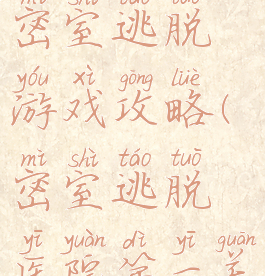 mì shì táo tuō
密室逃脱
yóu xì gōng lüè
游戏攻略(
mì shì táo tuō
密室逃脱
yī yuàn dì yī guān
医院第一关